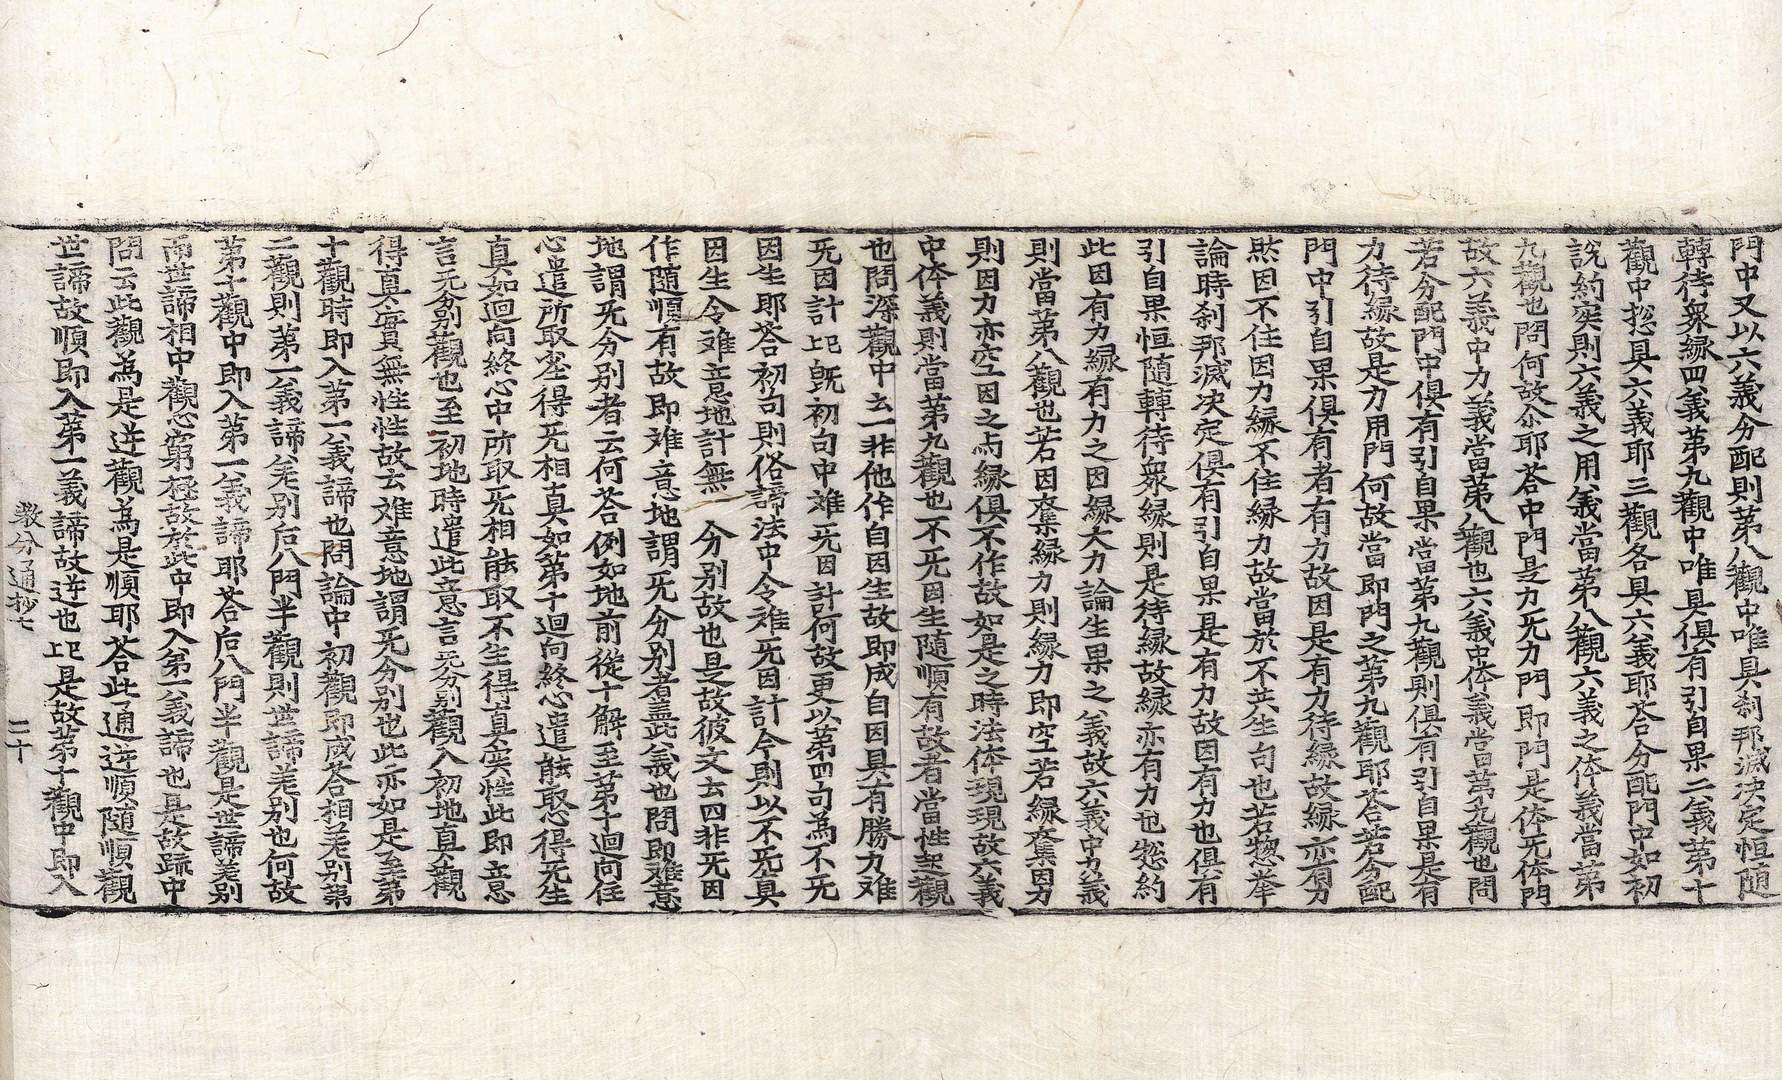 門中又以六義分配則第八觀中唯具刹那滅决定恒随
轉待衆縁四義第九觀中唯具俱有引自果二義第十
觀中㧾具六義耶三觀各具六義耶荅分配門中如初
說約实則六義之用義當第八觀六義之体義當第
九觀也問何故尒耶荅中門是力无力門即門是体无体門
故六義中力義當第八觀也六義中体義當第九觀也問
若分配門中俱有引自果當第九觀則俱有引自果是有
力待縁故是力用門何故當即門之第九觀耶荅若分配
門中引自果俱有者有力故因是有力待縁故縁亦有力
然因不住因力縁不住縁力故當於不共生句也若㧾举
論時刹那滅决定俱有引自果是有力故因有力也俱有
引自果恒随轉待衆縁則是待縁故縁亦有力也㧾約
此因有力縁有力之因縁大力論生果之義故六義中力義
則當第八觀也若因奪縁力則縁力即空若縁奪因力
則因力亦空因之与縁俱不作故如是之時法体現現故六義
中体義則當第九觀也不无因生随順有故者當性起觀
也問深觀中云一非他作自因生故即成自因具有勝力难
无因計此旣初句中难无因計何故更以第四句為不无
因生耶荅初句則俗諦法中令难无因計今則以不无真
因生令难意地計無　分别故也是故彼文云四非无因
作随順有故即难意地謂无分别者盖此義也問即难意
地謂无分别者云何荅例如地前從十解至第十迴向任
心遣所取塵得无相真如第十迴向終心遣能取心得无生
真如迴向終心中所取无相能取不生得真实性此即意
言无分别觀也至初地時遣此意言无分别觀入初地真觀
得真實無性性故云难意地謂无分别也此亦如是至第
十觀時即入第一義諦也問論中初觀即成荅相差别第
二觀則第一義諦差别后八門半觀則世諦差别也何故
第十觀中即入第一義諦耶荅后八門半觀是世諦差别
而世諦相中觀心窮極故於此中即入第一義諦也是故䟽中
問云此觀為是逆觀為是順耶荅此通逆順随順觀
世諦故順即入第一義諦故逆也此是故第十觀中即入
教分通抄七　二十